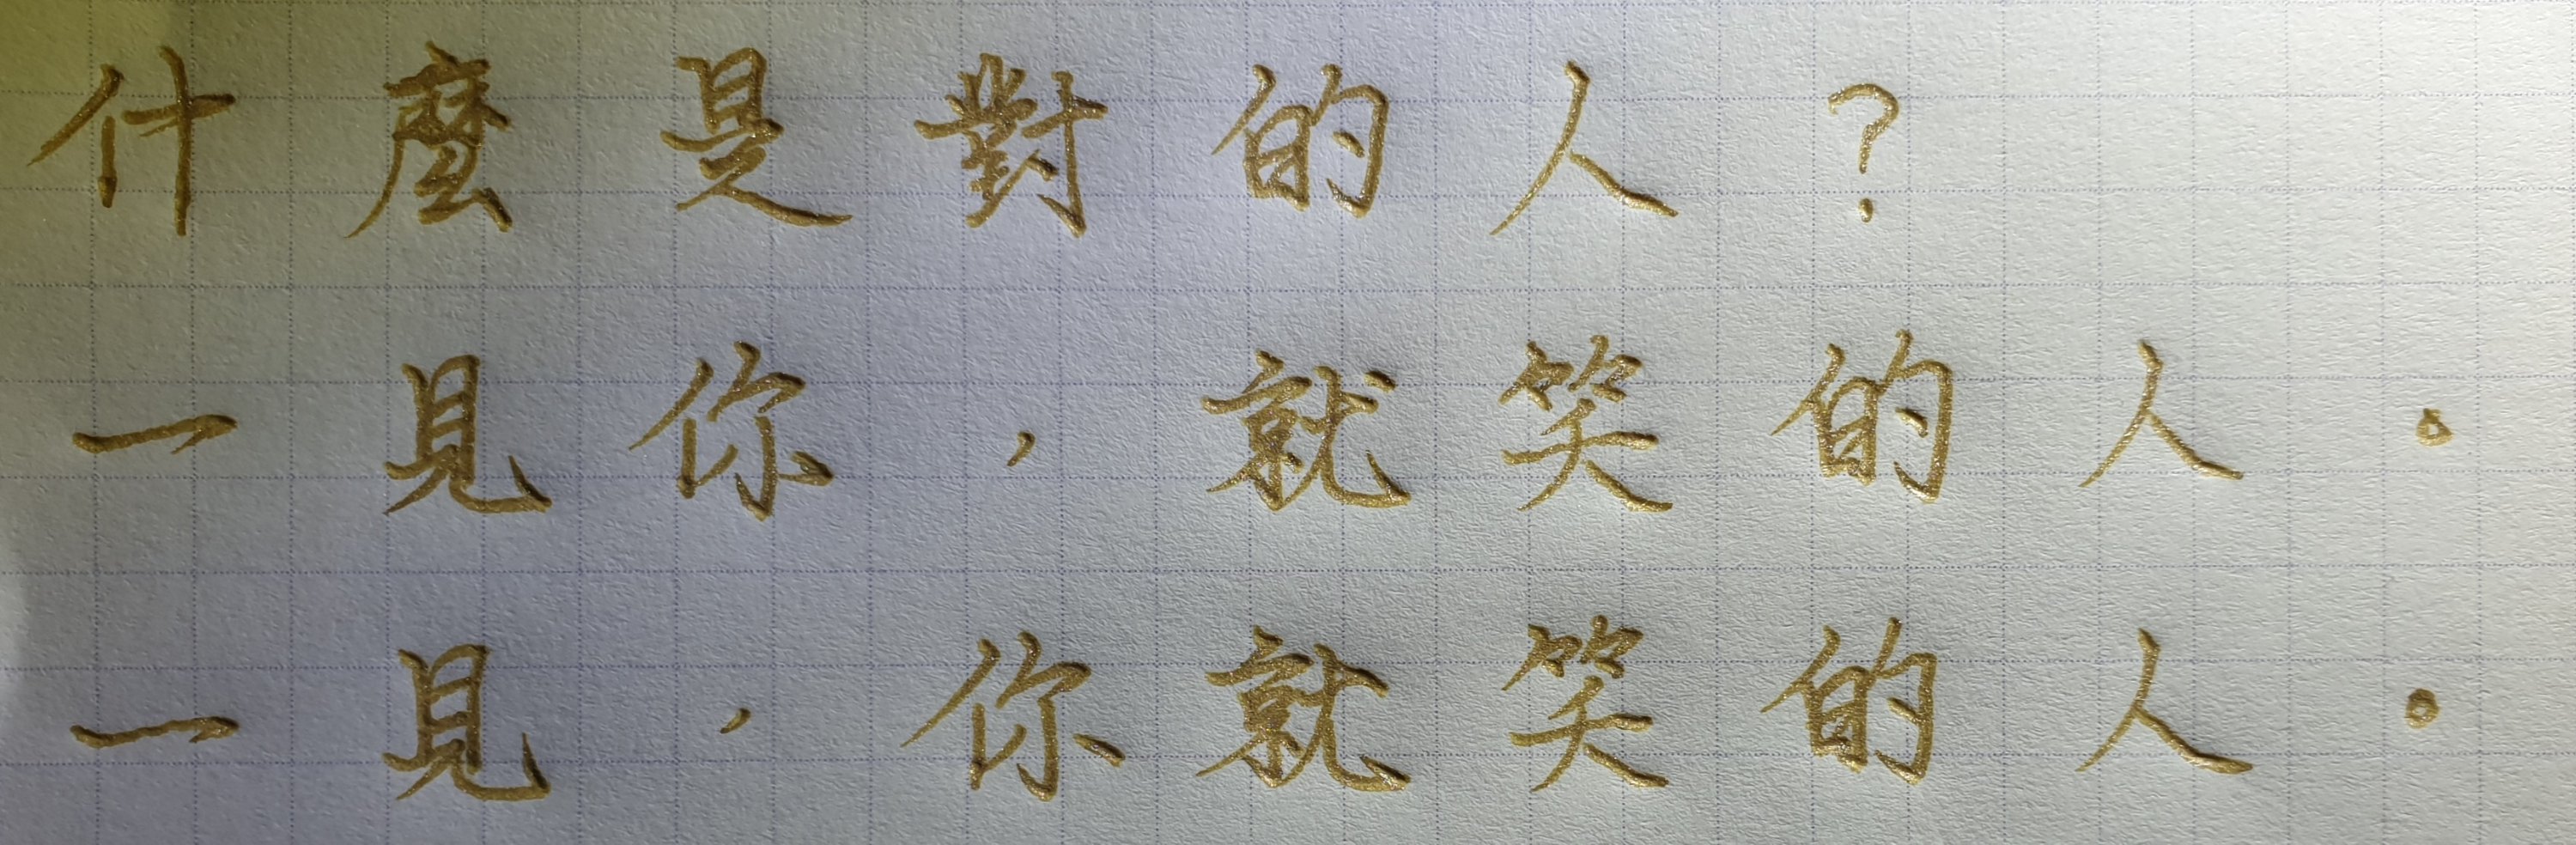 什麼是對的人?
一見你,就笑的人。
一見,你就笑的人。